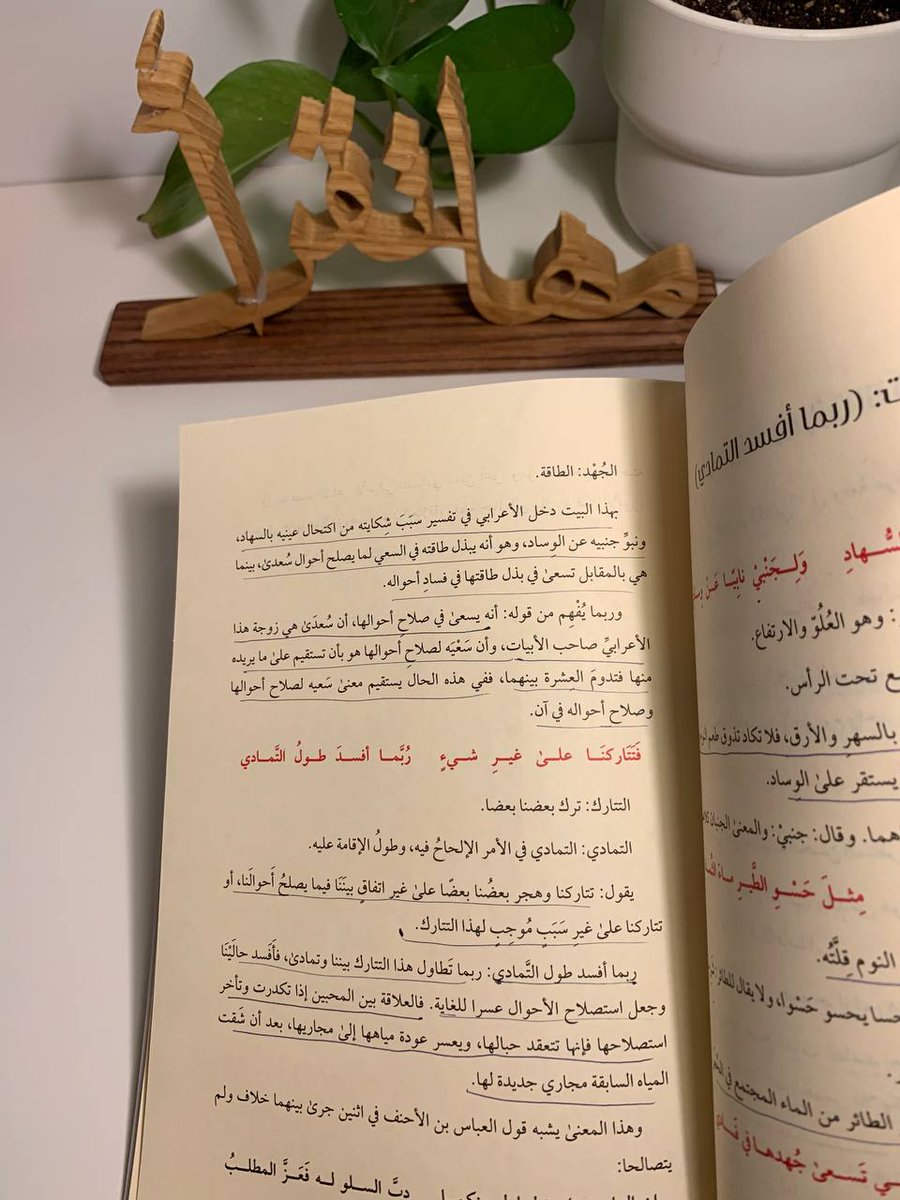 (ربما أفسد التمادي)
وَلِـجَنْبِيْ نابِيًا عَنْ
وهو العُلُوّ والارتفاع.
تحت الرأس.
بالسهرِ والأرق، فلا تكاد تذوق طعم
يستقر علىٰ الوساد.
وقال: جنبيْ: والمعنىٰ الجنبان
مِثـلَ حَسْوِ الطَّيرِ ماءَ
النوم قِلَّتُه.
حسا يحسو حَسْوا، ولا يقال للطائر:
الطائر من الماء المجتمع في
تَسعىٰ جُهدها في
الجُهْد: الطاقة.
بهذا البيت دخل الأعرابي في تفسير سَبَبَ شِكايته من اكتحال عينيه بالسهاد،
ونبوِّ جنبيه عن الوساد، وهو أنه يبذل طاقته في السعي لما يصلح أحوال سُعدىٰ، بينما
هي بالمقابل تسعىٰ في بذل طاقتها في فسادِ أحواله.
وربما يُفْهم من قوله: أنه يسعىٰ في صلاحِ أحوالها، أن سُعدَىٰ هي زوجة هذا
الأعرابيِّ صاحب الأبيات، وأن سَعْيَه لصلاحِ أحوالها هو بأن تستقيم علىٰ ما يريده
منها فتدومَ العِشرة بينهما، ففي هذه الحال يستقيم معنىٰ سَعيه لصلاح أحوالها
وصلاح أحواله في آن.
فَتَتَاركنَـا علـىٰ غيـرِ شـيءٍ رُبَّمـا أفسـدَ طـولُ التَّمادي
التتارك: ترك بعضنا بعضا.
التمادي: التمادي في الأمر الإلحاحُ فيه، وطولُ الإقامة عليه.
يقول: تتاركنا وهجر بعضُنا بعضًا علىٰ غير اتفاقٍ بيَننَا فيما يصلحُ أحوالنا، أو
تتاركنا علىٰ غيرِ سَبَبٍ مُوجِبٍ لهذا التتارك.
ربما أفسد طول التَّمادي: ربما تَطاول هذا التتارك بيننا وتمادىٰ، فأَفسد حالَيْنَا
وجعل استصلاح الأحوال عسرا للغاية. فالعلاقة بين المحبين إذا تكدرت وتأخر
استصلاحها فإنها تتعقد حبالها، ويعسر عودة مياهها إلىٰ مجاريها، بعد أن شَقت
المياه السابقة مجاري جديدة لها.
وهذا المعنىٰ يشبه قول العباس بن الأحنف في اثنين جرىٰ بينهما خلاف ولم
يتصالحا:
دبَّ السلو له فَعَزَّ المطلبُ